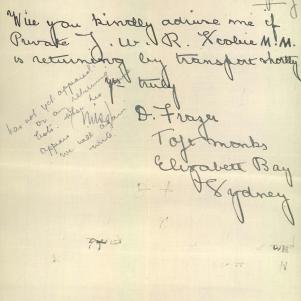 Will you kindly advise me if
Private J. W. R. Scobie M.M.
is returning by transport shortly
yrs truly
D. Fraser
Toft Monks
Elizabeth Bay
Sydney
has not yet appeared
on a returning
lists. When his
appears
we will again
write